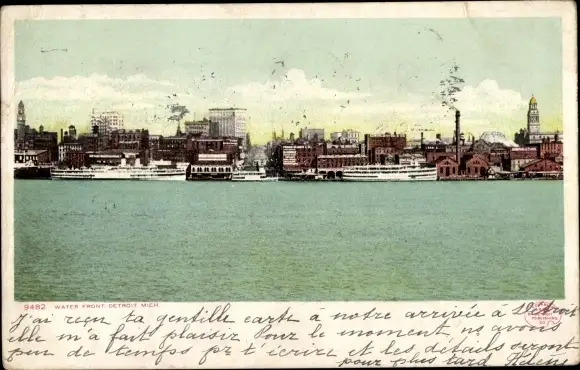 9482 WATER FRONT, DETROIT MICH.
J'ai reçu ta gentille carte à notre arrivée à Détroit
elle m'a fait plaisir Pour le moment ns avons
peu de temps pr t'écrire et les détails seront
pour plus tard